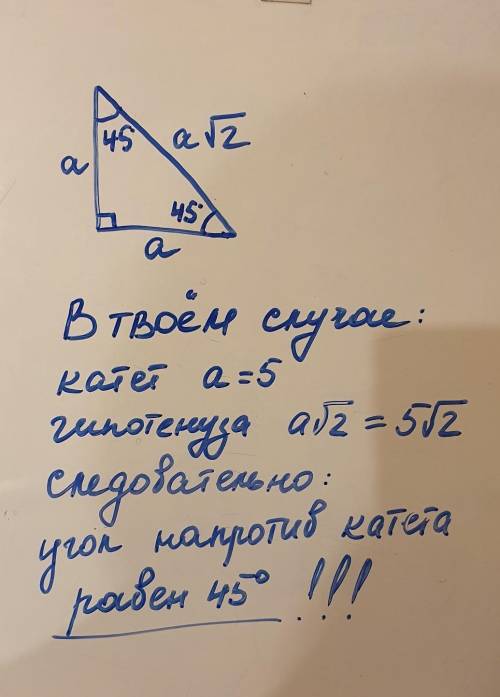 45
a√2
a
45°
a
В твоём случае:
катет a=5
гипотенуза a√2 = 5√2
следовательно:
угол напротив катета
равен 45° !!!